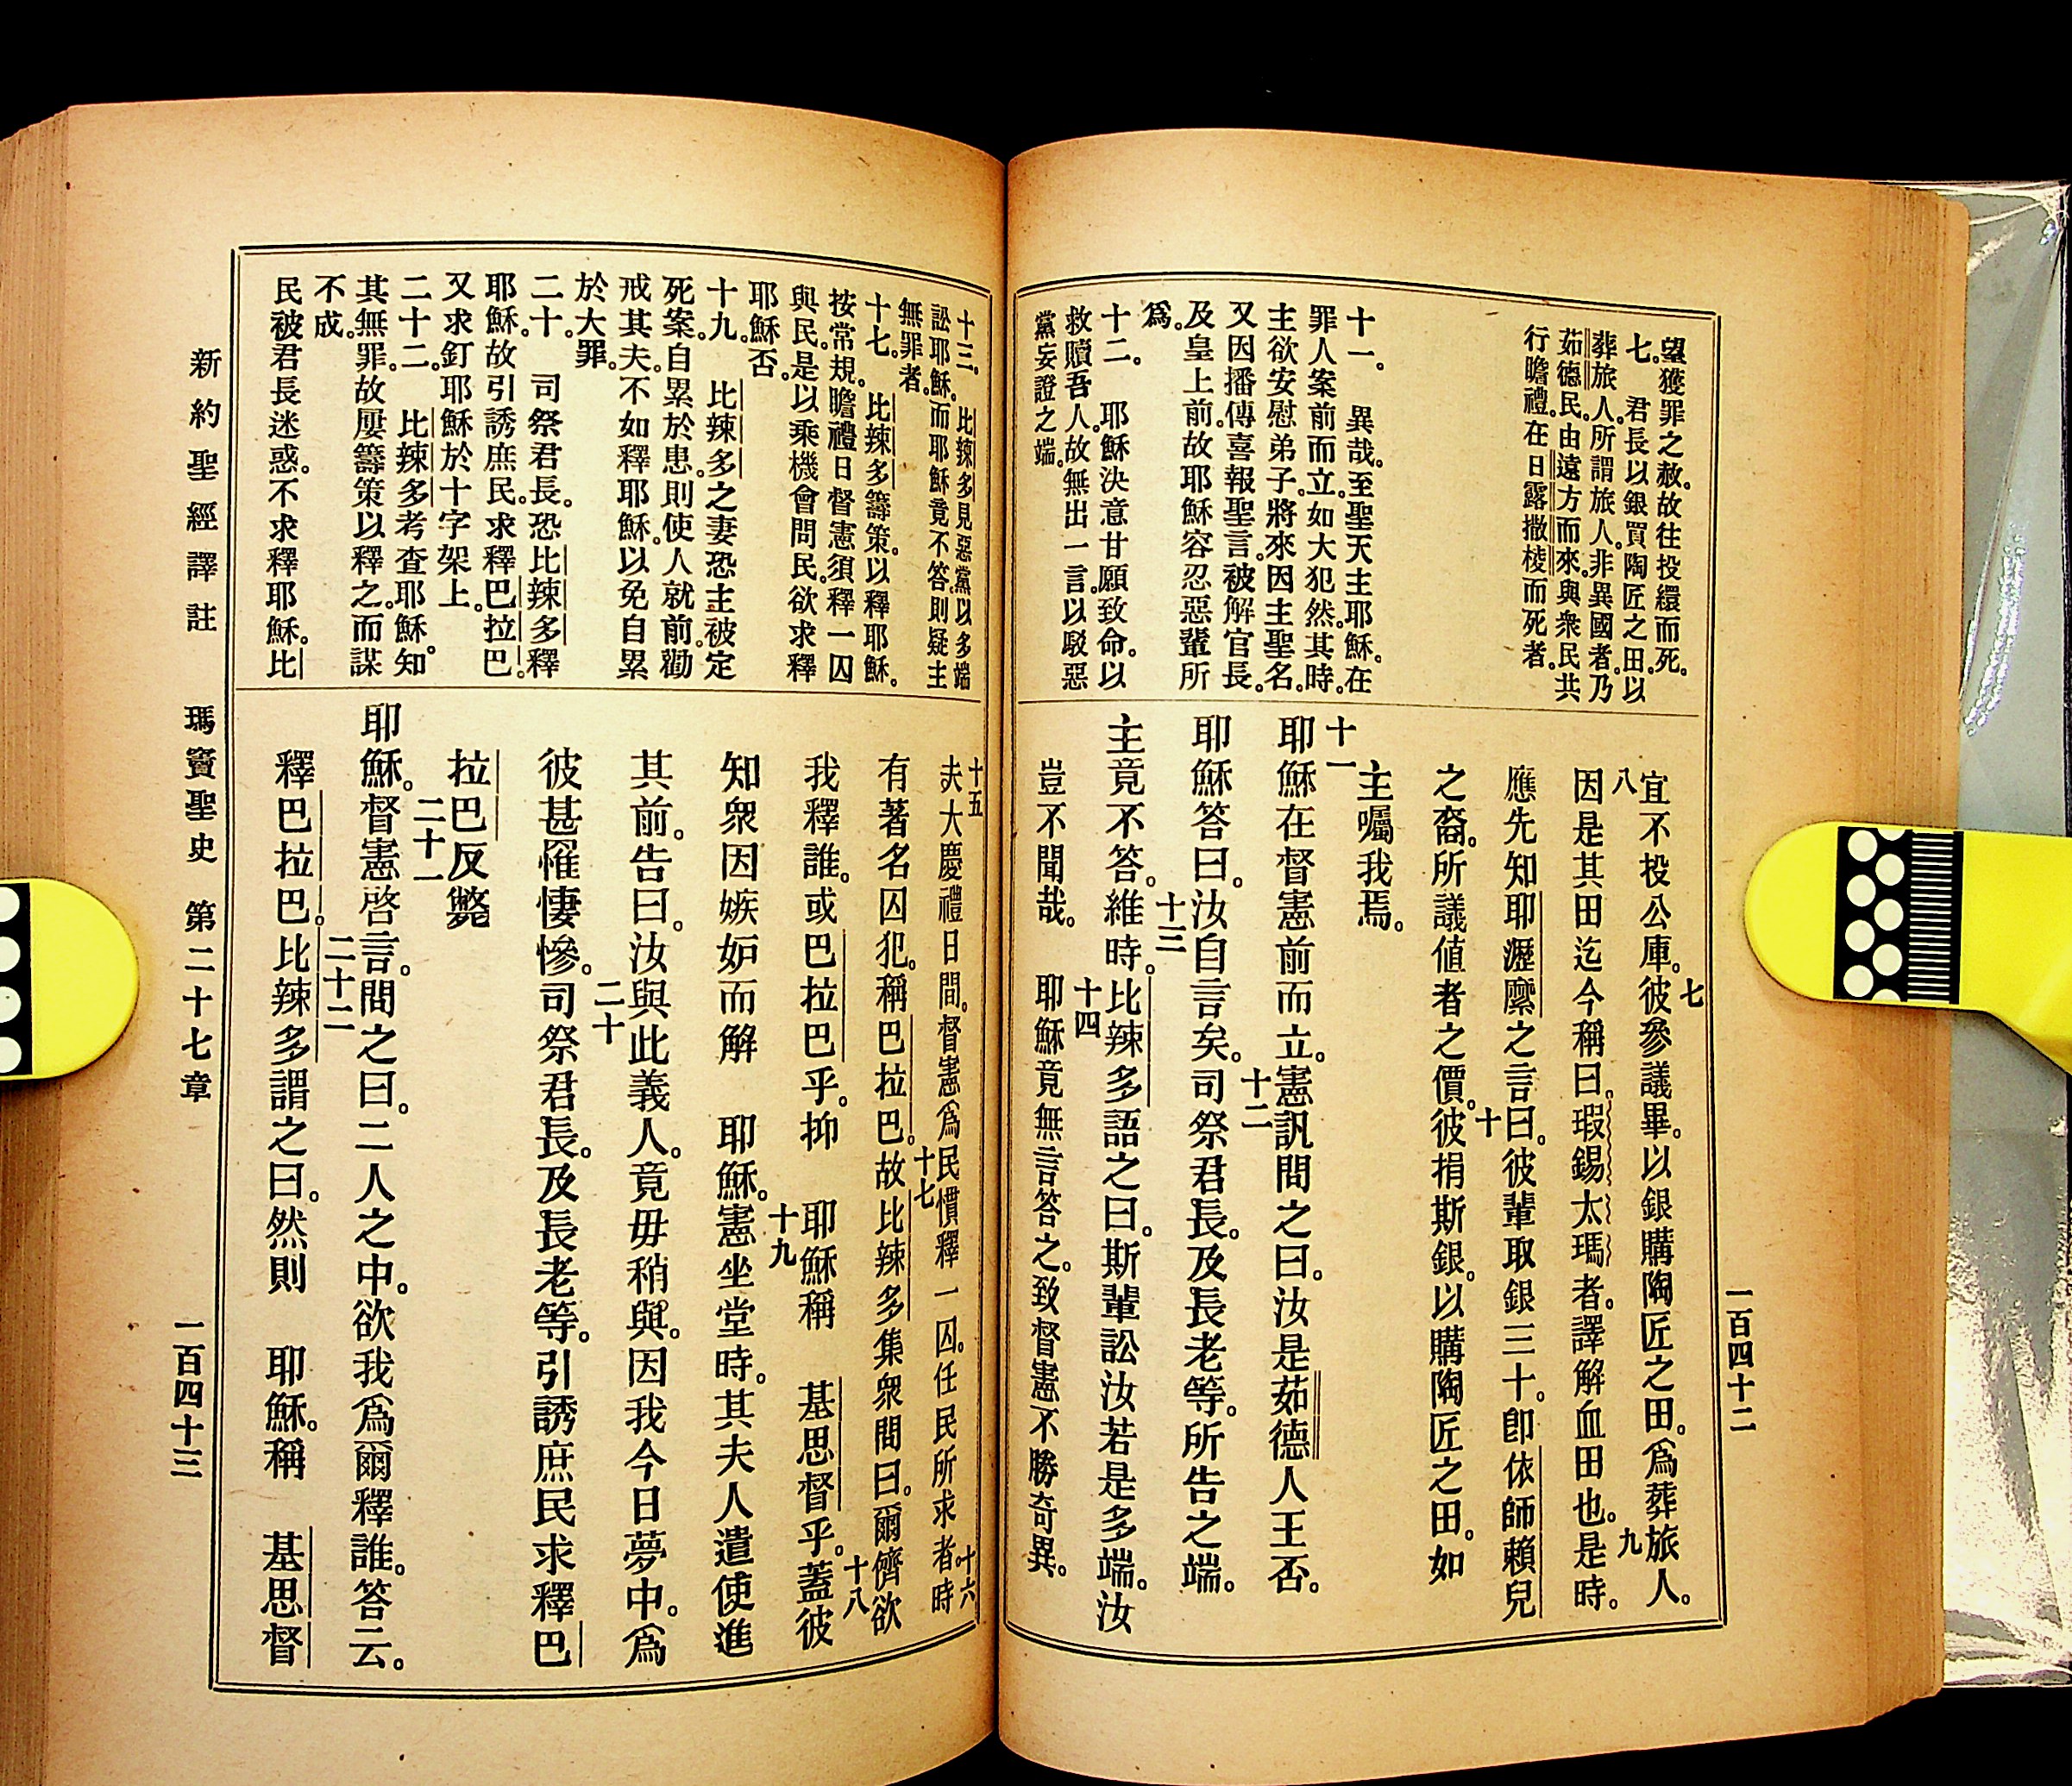 望獲罪之赦。故往投繯而死。
七。　君長以銀買陶匠之田。以
葬旅人。所謂旅人。非異國者。乃
茹德民。由遠方而來。與衆民共
行瞻禮。在日露撒棱而死者。
十一。　異哉。至聖天主耶穌。在
罪人案前而立。如大犯然。其時。
主欲安慰弟子。將來因主聖名。
又因播傳喜報聖言。被解官長。
及皇上前。故耶穌容忍惡輩所
爲。
十二。　耶穌決意甘願致命。以
救贖吾人。故無出一言。以駁惡
黨妄證之端。
宜不投公庫。七彼參議畢。以銀購陶匠之田。爲葬旅人。
八因是其田迄今稱曰。瑕錫太瑪者。譯解血田也。九是時。
應先知耶瀝縻之言曰。彼輩取銀三十。卽依師賴兒
之裔。所議値者之價。十彼捐斯銀。以購陶匠之田。如
主囑我焉。
十一耶穌在督憲前而立。憲訊問之曰。汝是茹德人王否。
耶穌答曰。汝自言矣。十二司祭君長。及長老等。所告之端。
主竟不答。十三維時。比辣多語之曰。斯輩訟汝若是多端。汝
豈不聞哉。　十四耶穌竟無言答之。致督憲不勝奇異。
一百四十二
十三。　比辣多見惡黨以多端
訟耶穌。而耶穌竟不答。則疑主
無罪者。
十七。　比辣多籌策。以釋耶穌。
按常規。瞻禮日督憲須釋一囚
與民。是以乘機會問民。欲求釋
耶穌否。
十九。　比辣多之妻恐主被定
死案。自累於患。則使人就前。勸
戒其夫。不如釋耶穌。以免自累
於大罪。
二十。　司祭君長。恐比辣多釋
耶穌。故引誘庶民。求釋巴拉巴。
又求釘耶穌於十字架上。
二十二。　比辣多考查耶穌。知
其無罪。故屢籌策以釋之。而謀
不成。
民被君長迷惑。不求釋耶穌。比
十五夫大慶禮日間。督憲爲民慣釋一囚。任民所求者。十六時
有著名囚犯。稱巴拉巴。十七故比辣多集衆問曰。爾儕欲
我釋誰。或巴拉巴乎。抑　耶穌稱　基思督乎。十八蓋彼
知衆因嫉妒而解　耶穌。十九憲坐堂時。其夫人遣使進
其前。告曰。汝與此義人。竟毋稍與。因我今日夢中。爲
彼甚罹悽慘。二十司祭君長。及長老等。引誘庶民求釋巴
拉巴反斃
耶穌。二十一督憲啓言。問之曰。二人之中。欲我爲爾釋誰。答云。
釋巴拉巴。二十二比辣多謂之曰。然則　耶穌。稱　基思督
新約聖經譯註　瑪竇聖史　第二十七章　一百四十三